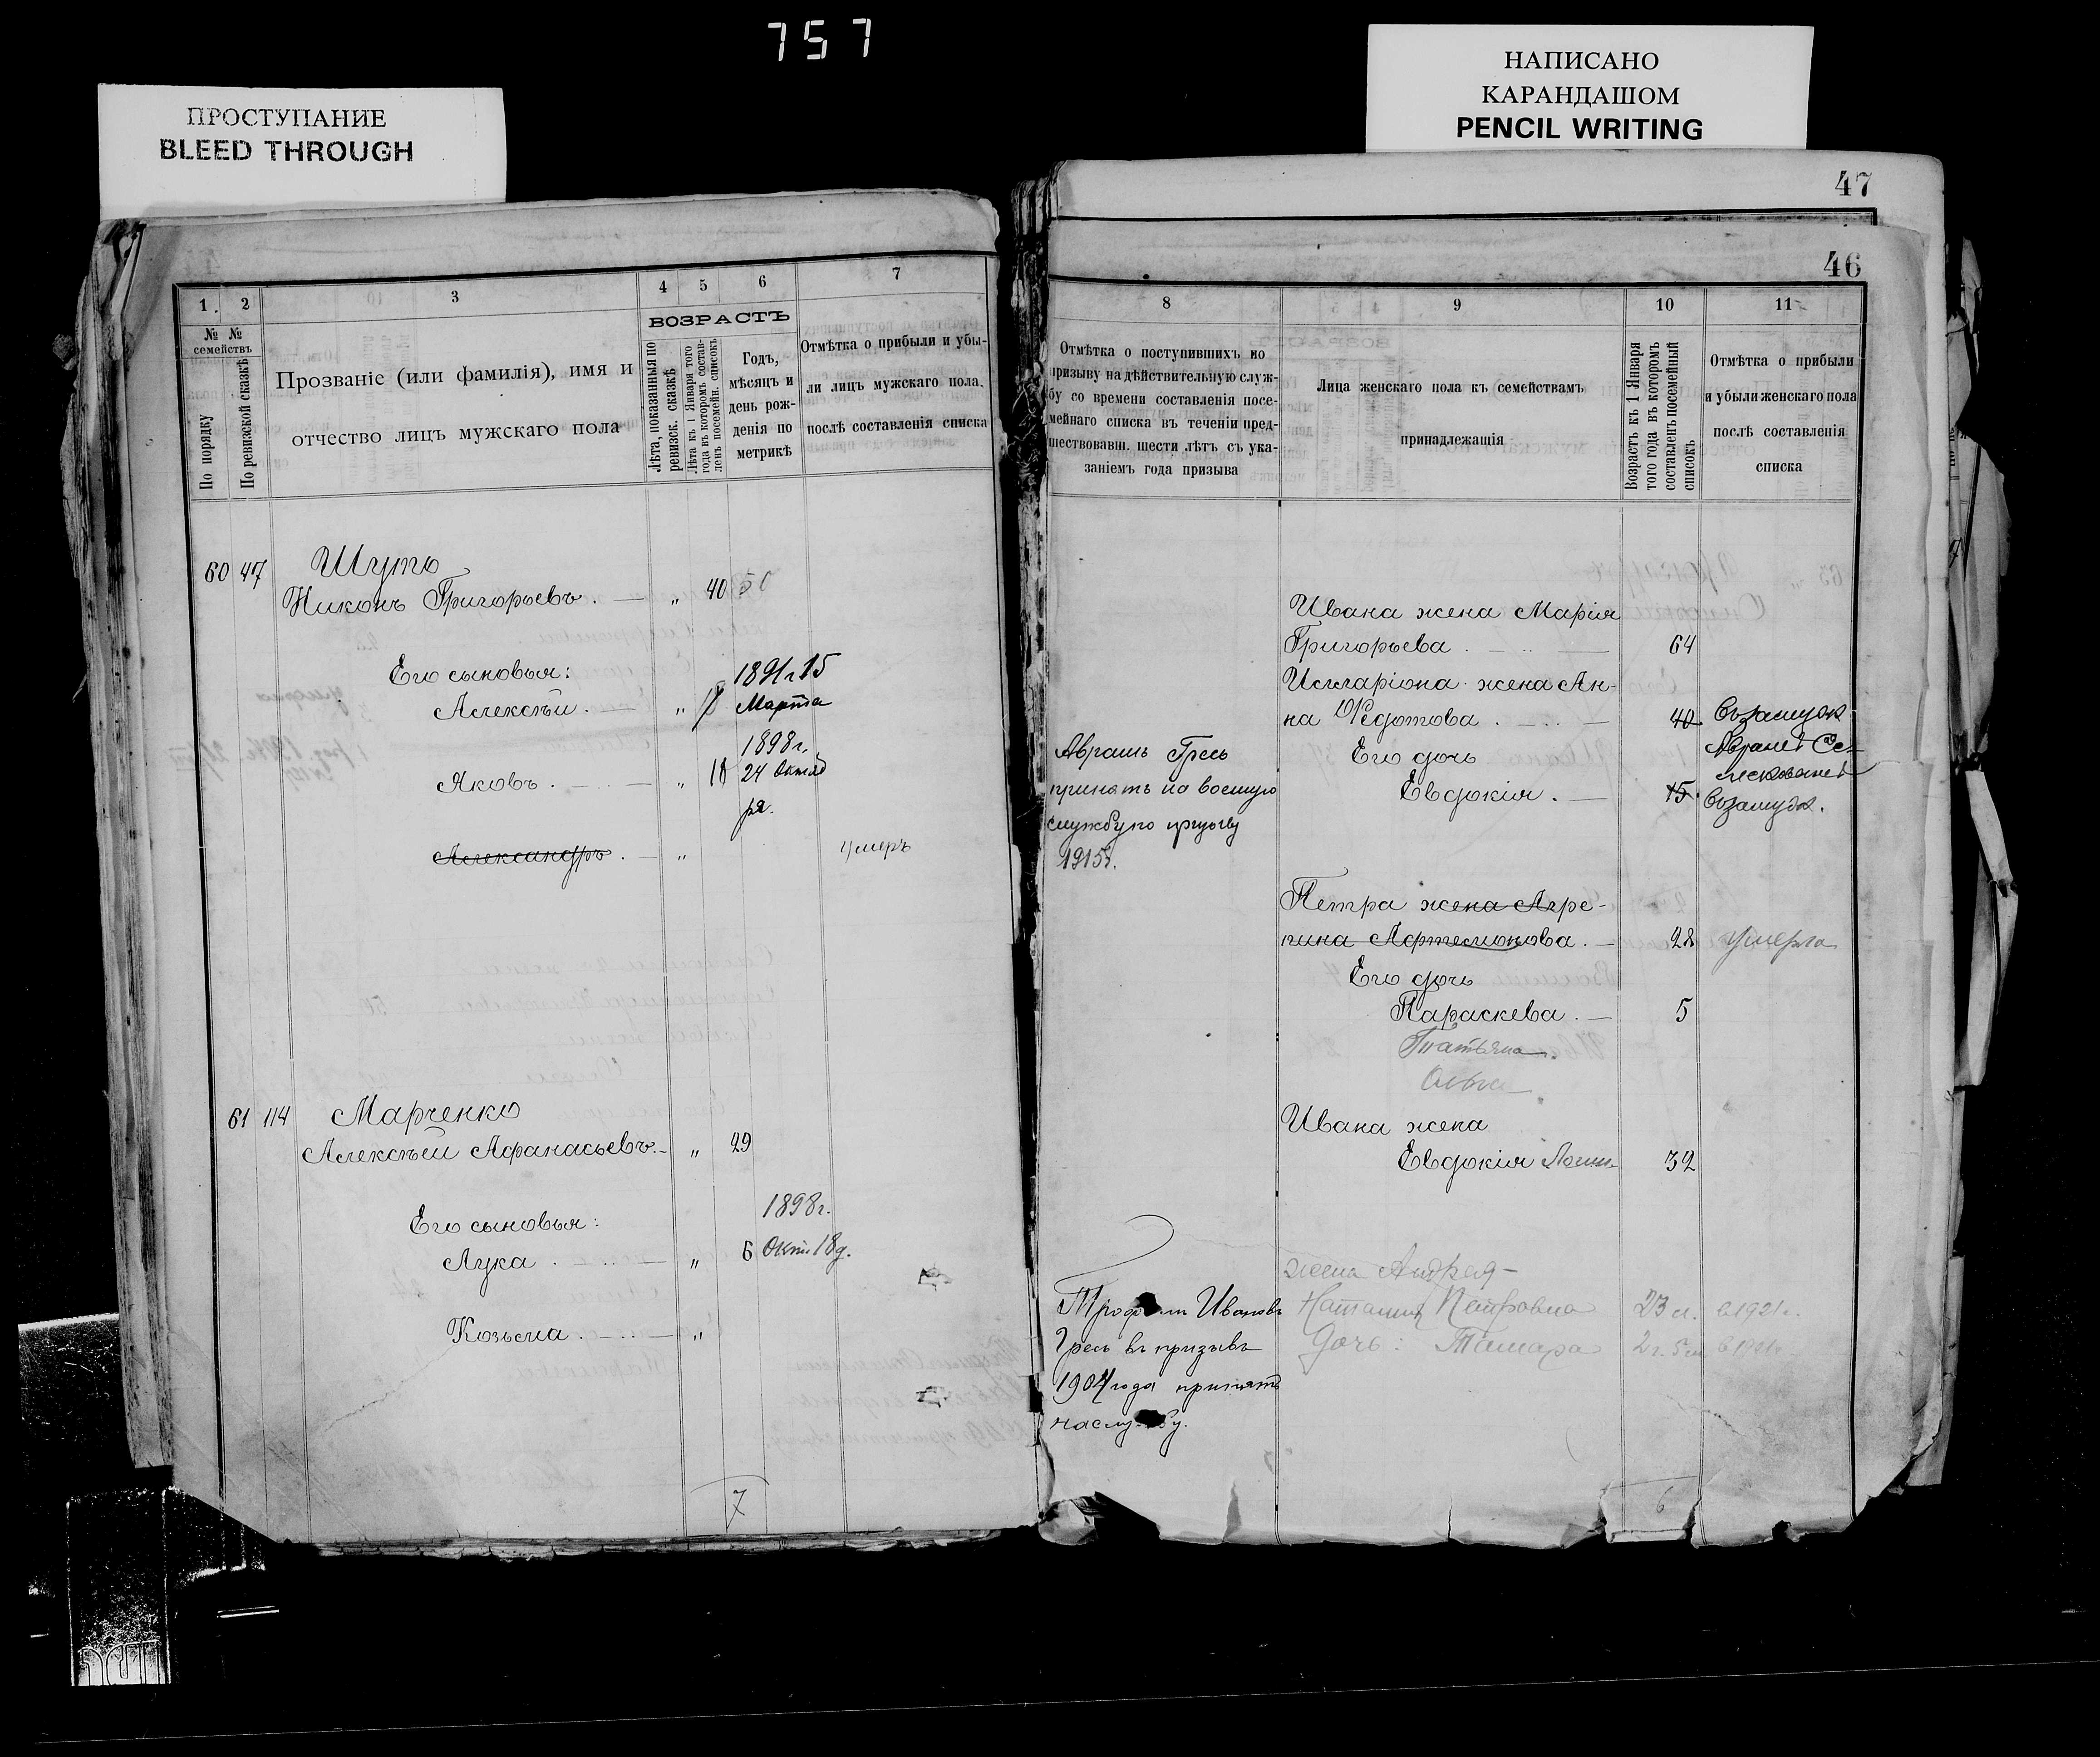 757
ПРОСТУПАНИЕ
BLEED THROUGH
НАПИСАНО
КАРАНДАШОМ
PENCIL WRITING
47
46
1. 2 3 4 5 6 7
№ №
семействъ
По порядку
По ревизской сказкѣ
Прозваніе (или фамилія), имя и
отчество лицъ мужскаго пола
ВОЗРАСТЪ
Лѣта, показанныя по
ревизск. сказкѣ
Лѣта къ 1 Января того
года въ которомъ состав-
ленъ посемейн. списокъ
Годъ,
мѣсяцъ и
день рож-
денія по
метрикѣ
Отмѣтка о прибыли и убы-
ли лицъ мужскаго пола,
послѣ составленія списка
60 47 Шуть
Никонъ Григорьевъ. — „ 40 50
Его сыновья:
1891г. 15
Алексѣй. — „ Марта
1898г.
Яковъ. — „ 24 Октяб
ря.
Александръ. — „ умеръ
61 114 Марченко
Алексѣй Афанасьевъ. „ 29
Его сыновья:
1898г.
Лука. — „ 6 Окт. 18д.
Козьма. — „
7
8 9 10 11
Отмѣтка о поступившихъ по
призыву на дѣйствительную служ-
бу со времени составленія посе-
мейнаго списка въ теченіи пред-
шествовавш. шести лѣтъ съ ука-
заніемъ года призыва
Лица женскаго пола къ семействамъ
принадлежащія
Возрастъ къ 1 Января
того года въ которомъ
составленъ посемейный
списокъ
Отмѣтка о прибыли
и убыли женскаго пола
послѣ составленія
списка
Ивана жена Марія
Григорьева. — 64
Илларіона жена Ан-
на Федотова. — 40 Въ замуж.
Его дочь
Евдокія. — 15 Въ замуж.
Аврамъ Гресь
принятъ на военную
службу по призыву
1915г.
Петра жена Агре-
пина Артемонова. — 28 умерла
Его дочь
Параскева. — 5
Татьяна
Ольга
Ивана жена
Евдокія 32
жена Андрея —
Наталия Петровна 23 л. в 1921г.
Дочь: Тамара
Ивановъ
Гресь въ призывъ
1904 года принятъ
на службу.
6